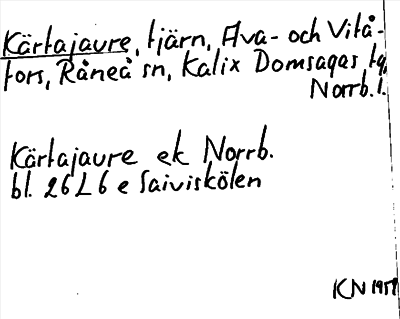 Kärtajaure, tjärn, Ava- och Vitå-
fors, Råneå sn, Kalix Domsagas tg,
Norrb. l.
Kärtajaure ek Norrb.
bl. 26L6 e Saiviskölen
KN 1959